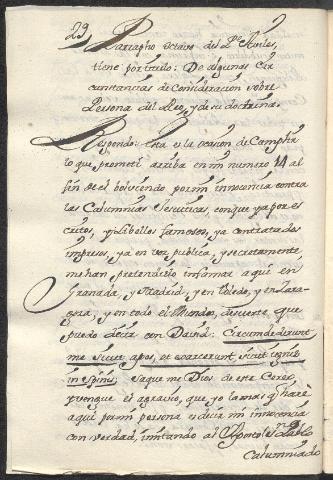 29,
Paragrapho Octavo del Pe. Aviles,
tiene por titulo: De algunas Cir
cunstancias de Consideración sobre
Persona del Reo, y de su doctrina.
Respondo: Esta es la ocasion de Cumplir
lo que prometi arriba en mi numero 14 al
fin de el bolviendo por mi innocencia contra
las Calumnias Jesuiticas, con que ya por es
critos, y libellos famosos, ya con tratados
impresos, ya en voz publica, y secretamente
me han pretendido infamar aqui en
Granada, y Madrid, y en Toledo, y en Zara
goza, y en todo el Mundo, de suerte, que
puedo decir con David: Circumdederunt
me sicut apes, et exarcerunt sicut ignis
in spinis; saque me Dios de este Cerco,
y vengue el agravio, que yo lo mas q. harè
aqui por mi persona es decir mi innocencia
con verdad, imitando al Apostol Sn. Pablo
Calumniado